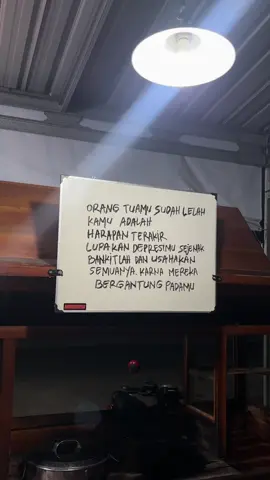 ORANG TUAMU SUDAH LELAH
KAMU ADALAH
HARAPAN TERAKIR
LUPAKAN DEPRESIMU SEJENAK
BANKITLAH DAN USAHAKAN
SEMUANYA. KARNA MEREKA
BERGANTUNG PADAMU